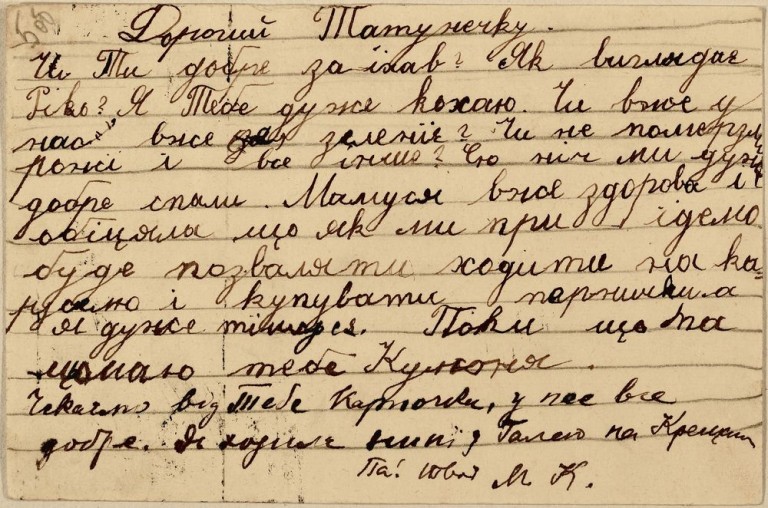 Дорогий Татунечку.
Чи Ти добре заїхав? Як виглядає
Ріко? Я Тебе дуже кохаю. Чи вже у
нас вже зеленіє? Чи не померзли
рожі і все інше? Сю ніч ми дуже
добре спали. Мамуся вже здорова і
обіцяла що як ми при ідемо
буде позваляти ходити на ка-
нделю і купувати пернички а
я дуже тішуся. Поки що па
цюмаю тебе Кулюня.
Чекаємо від Тебе карточки, у нас все
добре. Я ходила нині з Галею на
Па! Твоя М. К.